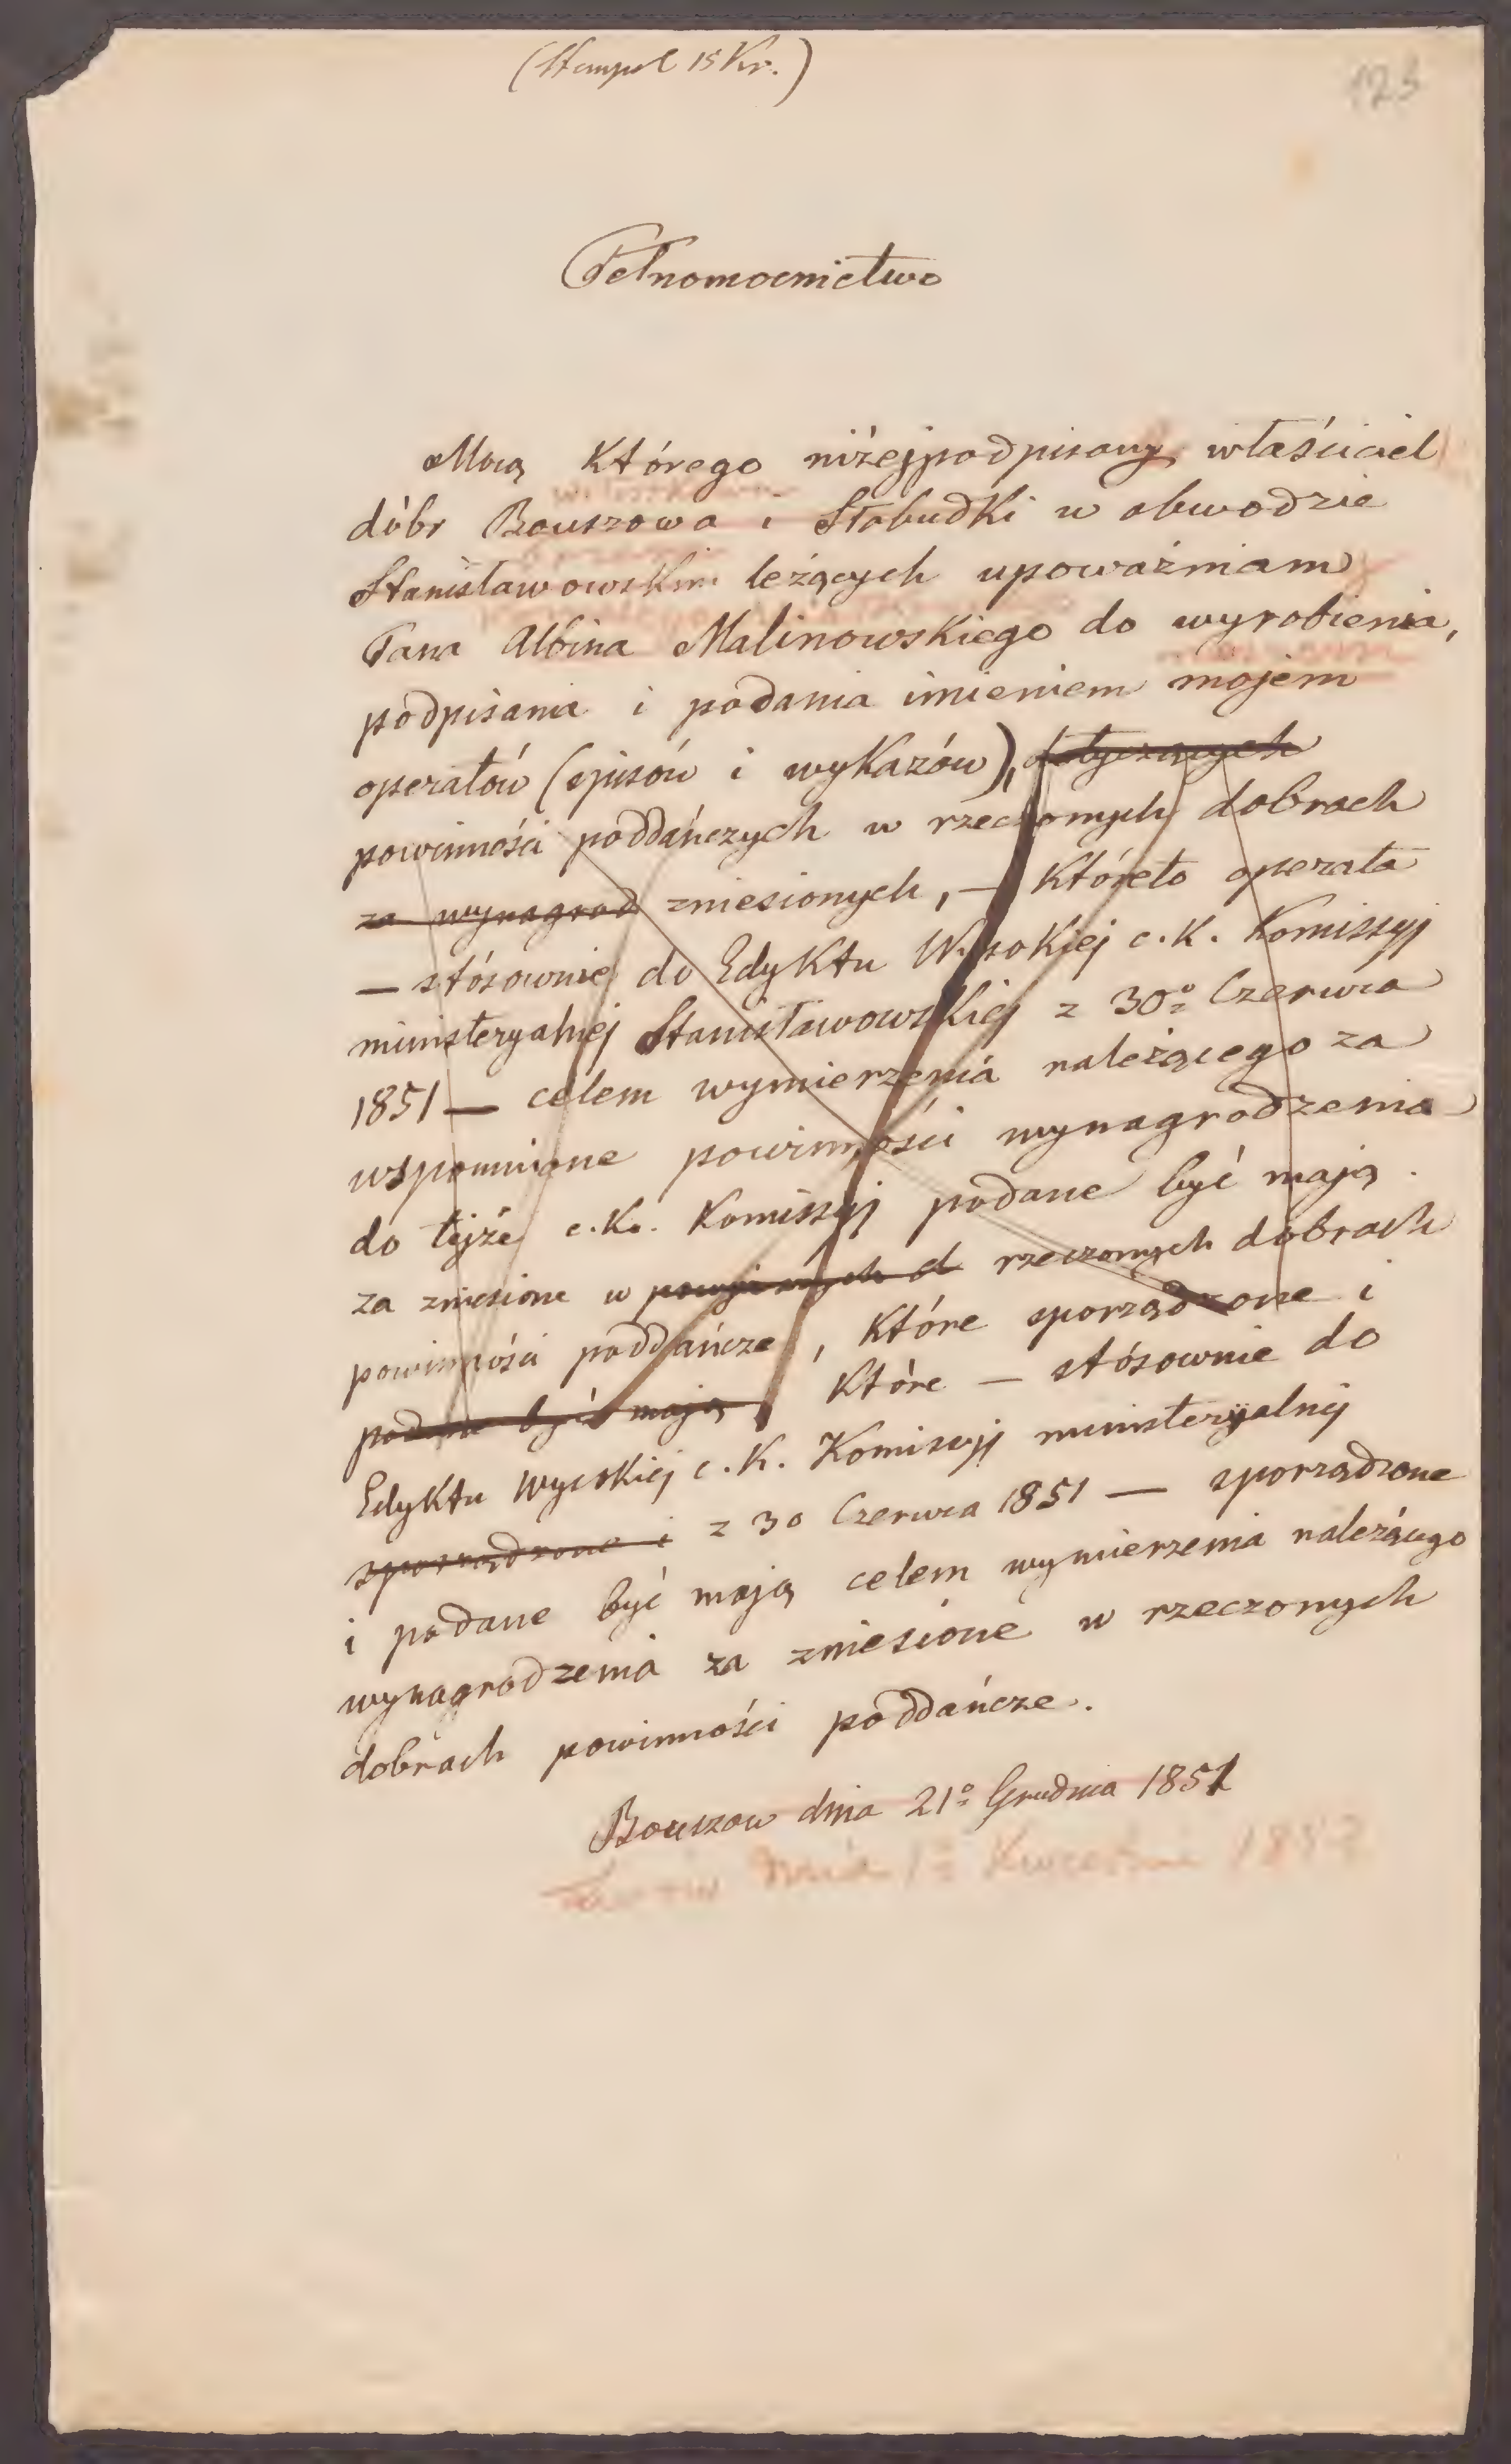 (Stempel 15 Kr.)
123
Pełnomocnictwo
Mocą którego niżejpodpisany właściciel
dóbr Bouszowa i Słobudki w obwodzie
Stanisławowskim leżących upoważniam
Pana Albina Malinowskiego do wyrobienia,
podpisania i podania imieniem mojem
operatów (spisów i wykazów), dotyczących
powinności poddańczych w rzeczonych dobrach
za wynagrod zniesionych, — któreto operata
— stósownie do Edyktu Wysokiej c. k. Komissyj
ministeryalnej Stanisławowskiej z 30º Czerwca
1851 — celem wymierzenia należącego za
wspomnione powinności wynagrodzenia
do tejże c. k. Komissyj podane być mają.
za zniesione w rzeczonych dobrach
powinności poddańcze, które sporządzone i
podane być mają, które — stósownie do
Edyktu Wysokiej c. K. Komissyj ministeryalnej
sporządzone i z 30 Czerwca 1851 — sporządzone
i podane być mają celem wymierzenia należącego
wynagrodzenia za zniesione w rzeczonych
dobrach powinności poddańcze.
Bouszow dnia 21º Grudnia 1851
dnia 1º Kwietnia 1852